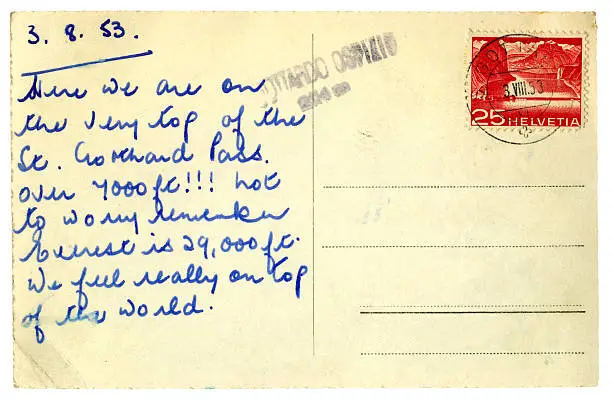 3. 8. 53.
Here we are on
the very top of the
St. Gotthard Pass.
over 7000ft!!! not
to worry remember
Everest is 29,000ft.
We feel really on top
of the world.
GOTTARDO OSPIZIO
3.VIII.53
25 HELVETIA